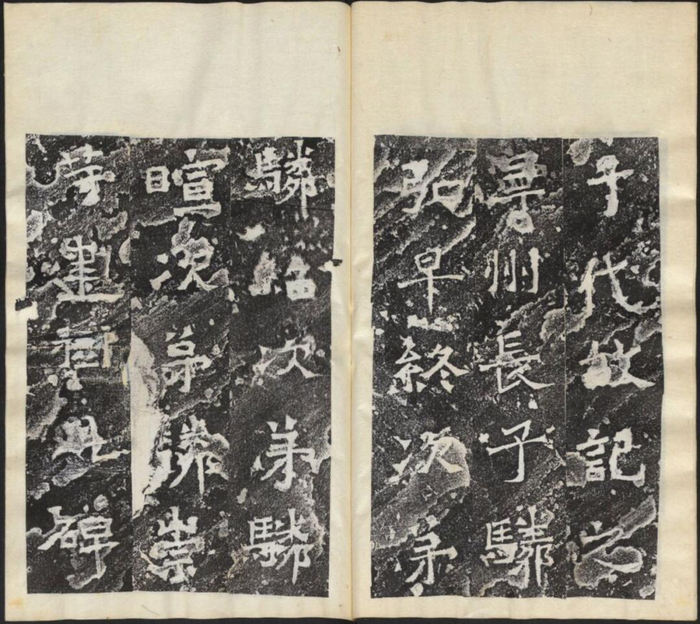 千代故記之
寧州長子驎
弘早終次弟
驎紹次弟驎
暄次弟驎崇
等建樹此碑